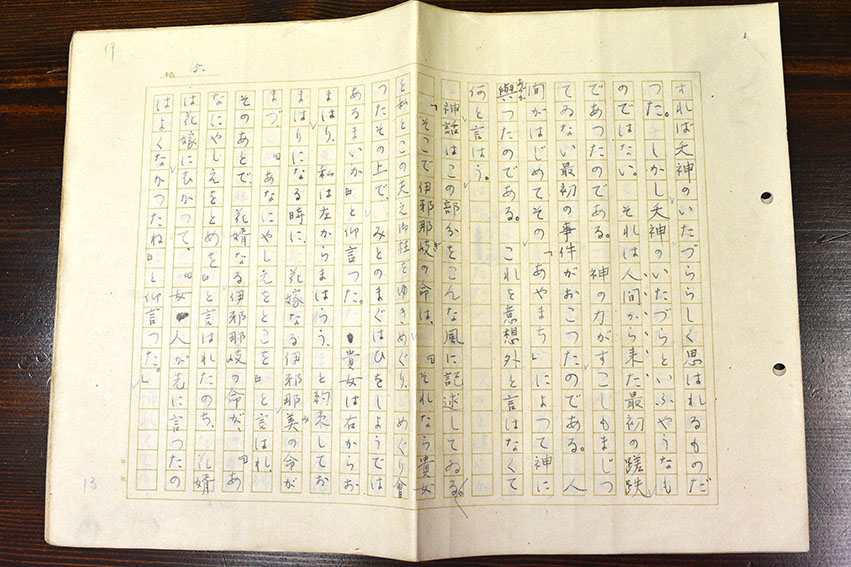 されば天神のいたづららしく思はれるものだ
つた。しかし天神のいたづらといふやうなも
のではない。それは人間から来た最初の蹉跌
であつたのである。神の力がすこしもまじつ
てゐない最初の事件がおこつたのである。人
間がはじめてその「あやまち」によつて神に
與つたのである。これを意想外と言はなくて
何と言はう。
神話はこの部分をこんな風に記述してゐる。
「そこで伊邪那岐の命は、『それなら貴女
と私とこの天之御柱をゆきめぐり、めぐり會
つたその上で、みとのまぐはひをしようでは
あるまいか』と仰言つた。貴女は右からお
まはり、私は左からまはらう、と約束してお
まはりになる時に、花嫁なる伊邪那美の命が
まづ、『あなにやしえをとこを』と言はれ、
そのあとで、花婿なる伊邪那岐の命が、『あ
なにやしえをとめを』と言はれたのち、花婿
は花嫁にむかつて、『女人が先に言つたの
はよくなかつたね』と仰言つた。」
No. 15.
13